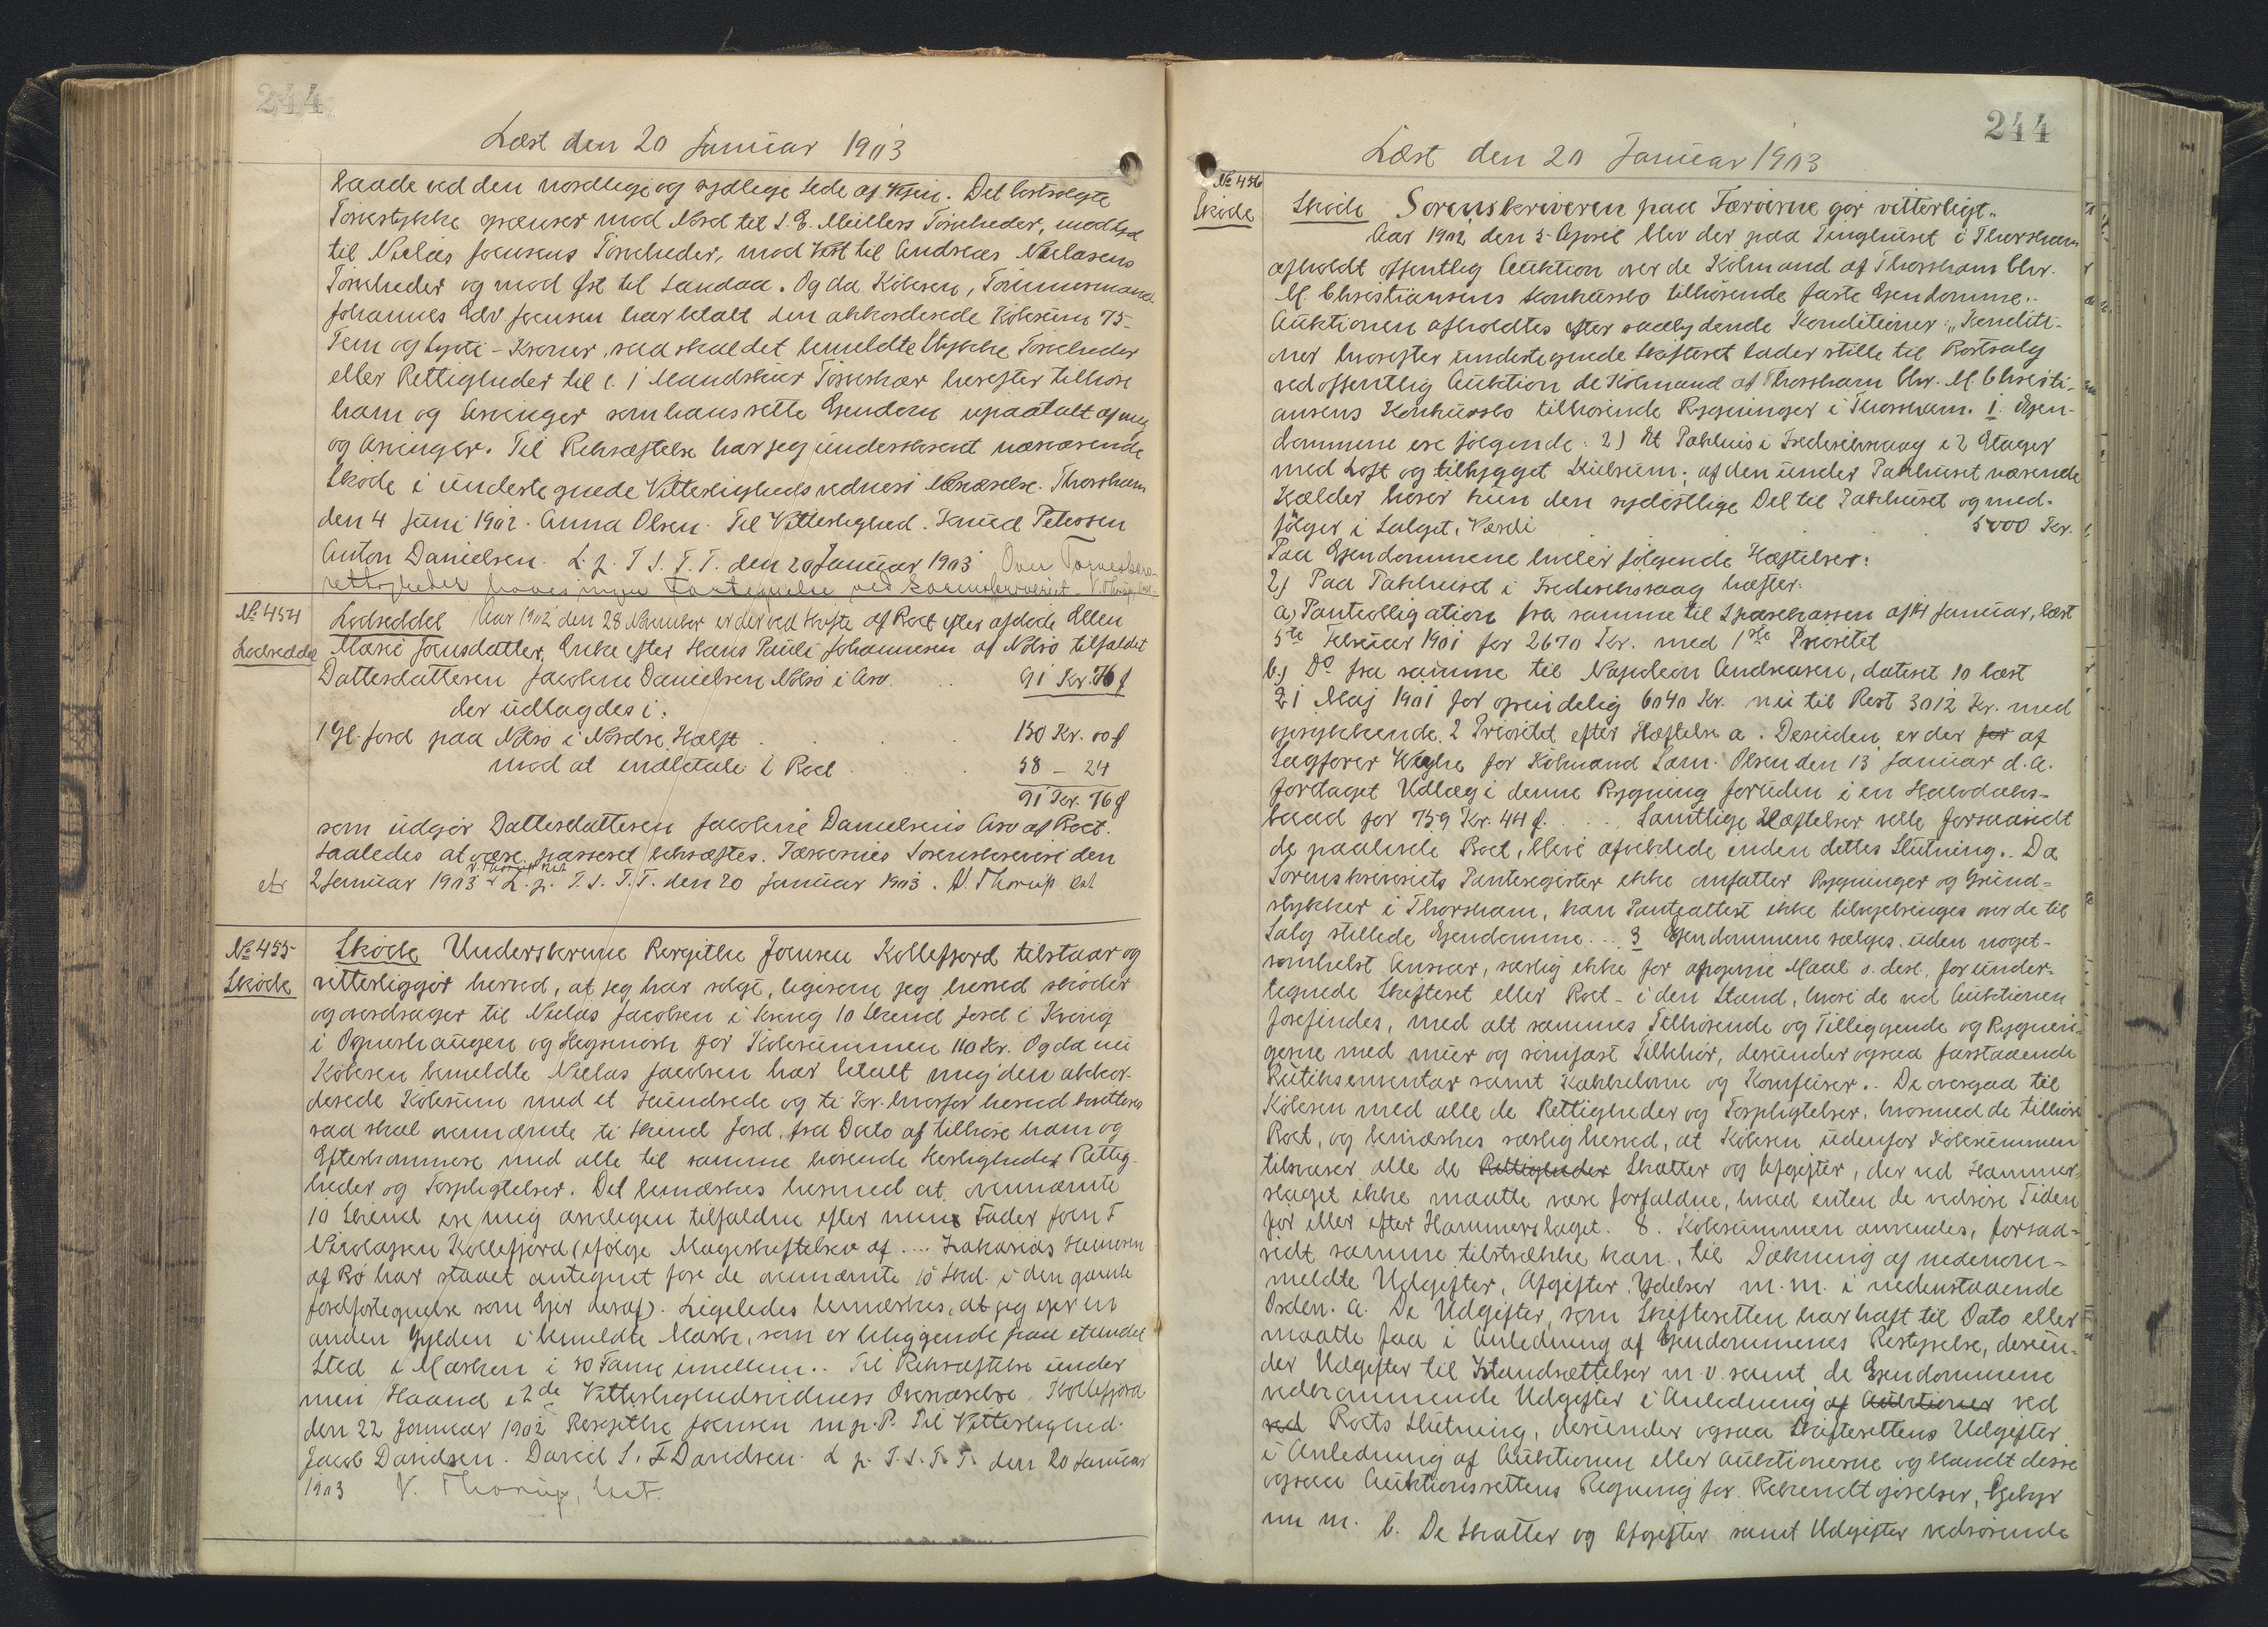 244
Læst den 20 Januar 1903
baade ved den nordlige og sydlige Side af Vejen. Det bortsolgte
Tørvestykke grænser mod Nord til S. E. Müllers Tørveheder, mod Syd
til Niclas Joensens Tørveheder, mod Vest til Andreas Niclasens
Tørveheder og mod Øst til Sandaa. Og da Køberen, Tømmermand
Johannes Edv. Joensen har betalt den akkorderede Købesum 75-
Fem og Syvti-Kroner, saa skal det bemeldte Stykke Tørveheder
eller Rettigheder til c. 1 Mandskær Tørveskær herefter tilhøre
ham og Arvinger som hans rette Ejendom upaatalt af mig
og Arvinger. Til Bekræftelse har jeg underskrevet nærværende
Skøde i undertegnede Vitterlighedsvidners Nærværelse. Thorshavn
den 4 Juni 1902. Anna Olsen. Til Vitterlighed. Knud Petersen
Anton Danielsen. L. p. T. S. T. T. den 20 Januar 1903 Over Tørveskærs-
rettigheder haves ingen Fortegnelse ved Sorenskriveriet V. Thorup, cst.
No 454
Lodseddel
Lodseddel Aar 1902 den 28 November er der ved Skifte af Boet efter afdøde Ellen
Marie Joensdatter, Enke efter Hans Pauli Johannesen af Nolsø tilfaldet
Datterdatteren Jacobine Danielsen Nolsø i Arv. .. 91 Kr. 76 f
der udlagdes i:
1 Gl. Jord paa Nolsø i Nordre Halft . . . 150 Kr. 00 f
mod at indbetale i Boet . . . 58 - 24
91 Kr. 76 f
som udgør Datterdatteren Jacobine Danielsens Arv af Boet.
Saaledes at være passeret bekræftes. Færøernes Sorenskriveri den
V. Thorup cst
2 Januar 1903 L. p. T. S. T. T. den 20 Januar 1903. V. Thorup cst
No 455
Skøde
Skøde Underskrevne Bergithe Joensen Kollefjord tilstaar og
vitterliggør herved, at jeg har solgt, ligesom jeg herved skøder
og overdrager til Niclas Jacobsen i Kvivig 10 Skind Jord i Kvivig
i Ognershaugen og Hegsmørk for Købesummen 110 Kr. Og da nu
Køberen bemeldte Niclas Jacobsen har betalt mig den akkor-
derede Købesum med et Hundrede og ti Kr. hvorfor herved kvitteres
saa skal ovennævnte ti Skind Jord, fra Dato af tilhøre ham og
Efterkommere med alle til samme hørende Herligheder Rettig-
heder og Forpligtelser. Det bemærkes hermed at ovennævnte
10 Skind ere mig arveligen tilfaldne efter min Fader Joen F
Nicolajsen Kollefjord (ifølge Mageskiftebrev af .... Zakarias Heinesen
af Bø har staaet antegnet fore de ovennævnte 10 Skd. i den gamle
Jordfortegnelse som Ejer deraf). Ligeledes bemærkes, at jeg ejer en
anden Gylden i bemeldte Mark, som er beliggende paa et andet
Sted i Marken i 50 Favne imellem.. Til Bekræftelse under
min Haand i 2de Vitterlighedsvidners Overværelse. Kollefjord
den 22 Januar 1902 Bergithe Joensen m. p. P. Til Vitterlighed.
Jacob Davidsen. David S. F. Davidsen. L. p. T. S. T. T. den 20 Januar
1903 V. Thorup, cst.
244
Læst den 20 Januar 1903
No 456
Skøde
Skøde Sorenskriveren paa Færøerne gør vitterligt..
Aar 1902 den 5 April blev der paa Tinghuset i Thorshavn
afholdt offentlig Auktion over de Købmand af Thorshavn Chr.
M. Christiansens Konkursbo tilhørende faste Ejendomme..
Auktionen afholdtes efter saalydende Konditioner: „Konditi-
oner hvorefter undertegnede Skifteret lader stille til Bortsalg
ved offentlig Auktion de Købmand af Thorshavn Chr. M. Christi-
ansens Konkursbo tilhørende Bygninger i Thorshavn. 1. Ejen-
dommene ere følgende: 2) Et Pakhus i Frederiksvaag i 2 Etager
med Loft og tilbygget Kulrum; af den under Pakhuset værende
Kælder hører kun den sydøstlige Del til Pakhuset og med-
følger i Salget, Værdi . . . 5000 Kr.
Paa Ejendommene hviler følgende Hæftelser:
2) Paa Pakhuset i Frederiksvaag hæfter:
a) Panteobligation fra samme til Sparekassen af 14 Januar, læst
5te Februar 1901 for 2670 Kr. med 1ste Prioritet
b) Do fra samme til Napoleon Andreasen, dateret 10 læst
21 Maj 1901 for oprindelig 6040 Kr. nu til Rest 3012 Kr. med
oprykkende 2 Prioritet efter Hæftelse a. Desuden er der for af
Sagfører Weyhe for Købmand Sam. Olsen den 13 Januar d. A.
foretaget Udlæg i denne Bygning foruden i en Halvdæks-
baad for 759 Kr. 44 f. . . . Samtlige Hæftelser ville forsaavidt
de paahvile Boet, blive afviklede inden dettes Slutning.. Da
Sorenskriveriets Panteregister ikke omfatter Bygninger og Grund-
stykker i Thorshavn, kan Panteattest ikke tilvejebringes over de til
Salg stillede Ejendomme... 3 Ejendommene sælges uden noget-
somhelst Ansvar, særlig ikke for opgivne Maal o. desl. for under-
tegnede Skifteret eller Boet - i den Stand, hvori de ved Auktionen
forefindes, med alt sammes Tilhørende og Tilliggende og Bygnin-
gerne med mur og sømfast Tilbehør, derunder ogsaa fasstaaende
Butiksinventar samt Kakkelovne og Komfurer.. De overgaa til
Køberen med alle de Rettigheder og Forpligtelser, hvormed de tilhøre
Boet, og bemærkes særlig herved, at Køberen udenfor Købesummen
tilsvarer alle de Rettigheder Skatter og Afgifter, der ved Hammer-
slaget ikke maatte være forfaldne, hvad enten de vedrøre Tiden
før eller efter Hammerslaget. 8. Købesummen anvendes, forsaa-
vidt samme tilstrække kan, til Dækning af nedenom-
meldte Udgifter, Afgifter, Ydelser m. m. i nedenstaaende
Orden. a. De Udgifter, som Skifteretten har haft til Dato eller
maatte faa i Anledning af Ejendommenes Bestyrelse, derun-
der Udgifter til Istandsættelser m. v. samt de Ejendommene
vedkommende Udgifter i Anledning af Auktioner ved
ved Boets Slutning, derunder ogsaa Skifterettens Udgifter
i Anledning af Auktionen eller Auktionerne og blandt disse
ogsaa Auktionsrettens Regning for Bekendtgørelser, Gebyr
m m. b. De Skatter og Afgifter samt Udgifter vedrørende